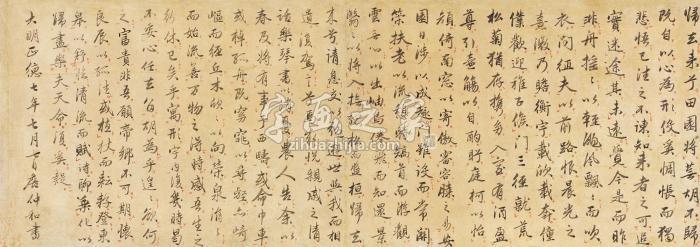 歸去来兮田園将蕪胡不歸
既自以心為形役奚惆悵而獨
悲悟已往之不諫知来者之可追
實迷途其未遠覺今是而昨
非舟摇摇以輕颺風飄飄而吹
衣問征夫以前路恨晨光之
熹微乃瞻衡宇載欣載奔僮
僕歡迎稚子候門三徑就荒
松菊猶存入室有酒盈
尊引壺觴以自酌眄庭柯以怡
顏倚南窓以寄傲審容膝之易安
園日涉以成趣門雖設而常關
策扶老以流憩時矯首而遊觀
雲無心以出岫鳥倦飛而知還景
翳翳以将入撫孤松而盤桓歸去
来兮請息交以絶遊世與我而相
遺復駕言兮焉求悅親戚之情
話樂琴書以消憂農人告余以
春及将有事于西疇或命巾車
或棹孤舟既窈窕以尋壑亦崎
嶇而經丘木欣欣以向榮泉涓涓
而始流善万物之得時感吾生之
行休已矣乎寓形宇内復幾時曷
不委心任去留胡為乎遑遑欲何
之富貴非吾願帝鄉不可期懷
良辰以孤往或植杖而耘耔登東
皋以舒嘯臨清流而賦詩聊乘化以
歸盡樂夫天命復奚疑
大明正德七年七月七日唐仲和書
字画之家